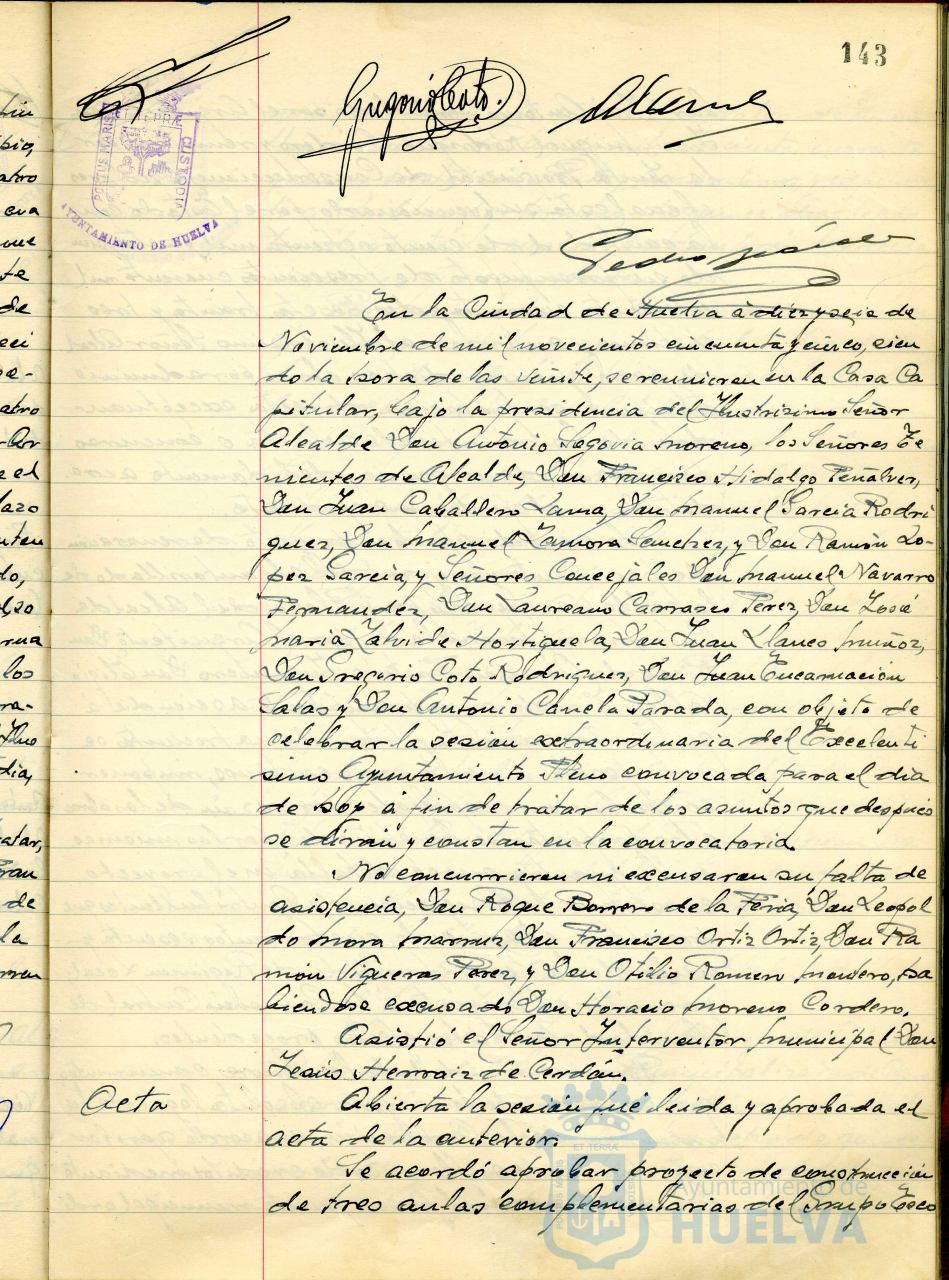 143
Gregorio Coto.
PORTUS MARIS ET TERRÆ CUSTODIA
AYUNTAMIENTO DE HUELVA
Pedro
En la Ciudad de Huelva á diez y seis de
Noviembre de mil novecientos cincuenta y cinco, sien
do la hora de las veinte, se reunieron en la Casa Ca
pitular, bajo la presidencia del Ilustrisimo Señor
Alcalde Don Antonio Segovia Moreno, los Señores Te
nientes de Alcalde, Don Francisco Hidalgo Peñalver,
Don Juan Caballero Lama, Don Manuel Garcia Rodri
guez, Don Manuel Zamora Sanchez, y Don Ramón Lo-
pez Garcia, y Señores Concejales Don Manuel Navarro
Fernandez, Don Laureano Carrasco Perez, Don José
Maria Zalvide Hortiguela, Don Juan Llanes Muñoz,
Don Gregorio Coto Rodriguez, Don Juan Encarnación
Salas y Don Antonio Canela Parada, con objeto de
celebrar la sesión extraordinaria del Excelenti
simo Ayuntamiento Pleno convocada para el dia
de hoy á fin de tratar de los asuntos que después
se dirán y constan en la convocatoria.
No concurrieron ni excusaron su falta de
asistencia, Don Roque Borrero de la Feria, Don Leopol
do Mora Don Francisco Ortiz Ortiz, Don Ra
món Vigueras Perez, y Don Otilio Romero Montero, ha
biendose excusado Don Horacio Moreno Cordero.
Asistió el Señor Interventor Municipal Don
Jesús Herraiz de Cerdán.
Acta
Abierta la sesión fué leida y aprobada el
acta de la anterior.
Se acordó aprobar proyecto de construcción
de tres aulas complementarias del Grupo Esco
Ayuntamiento de
HUELVA